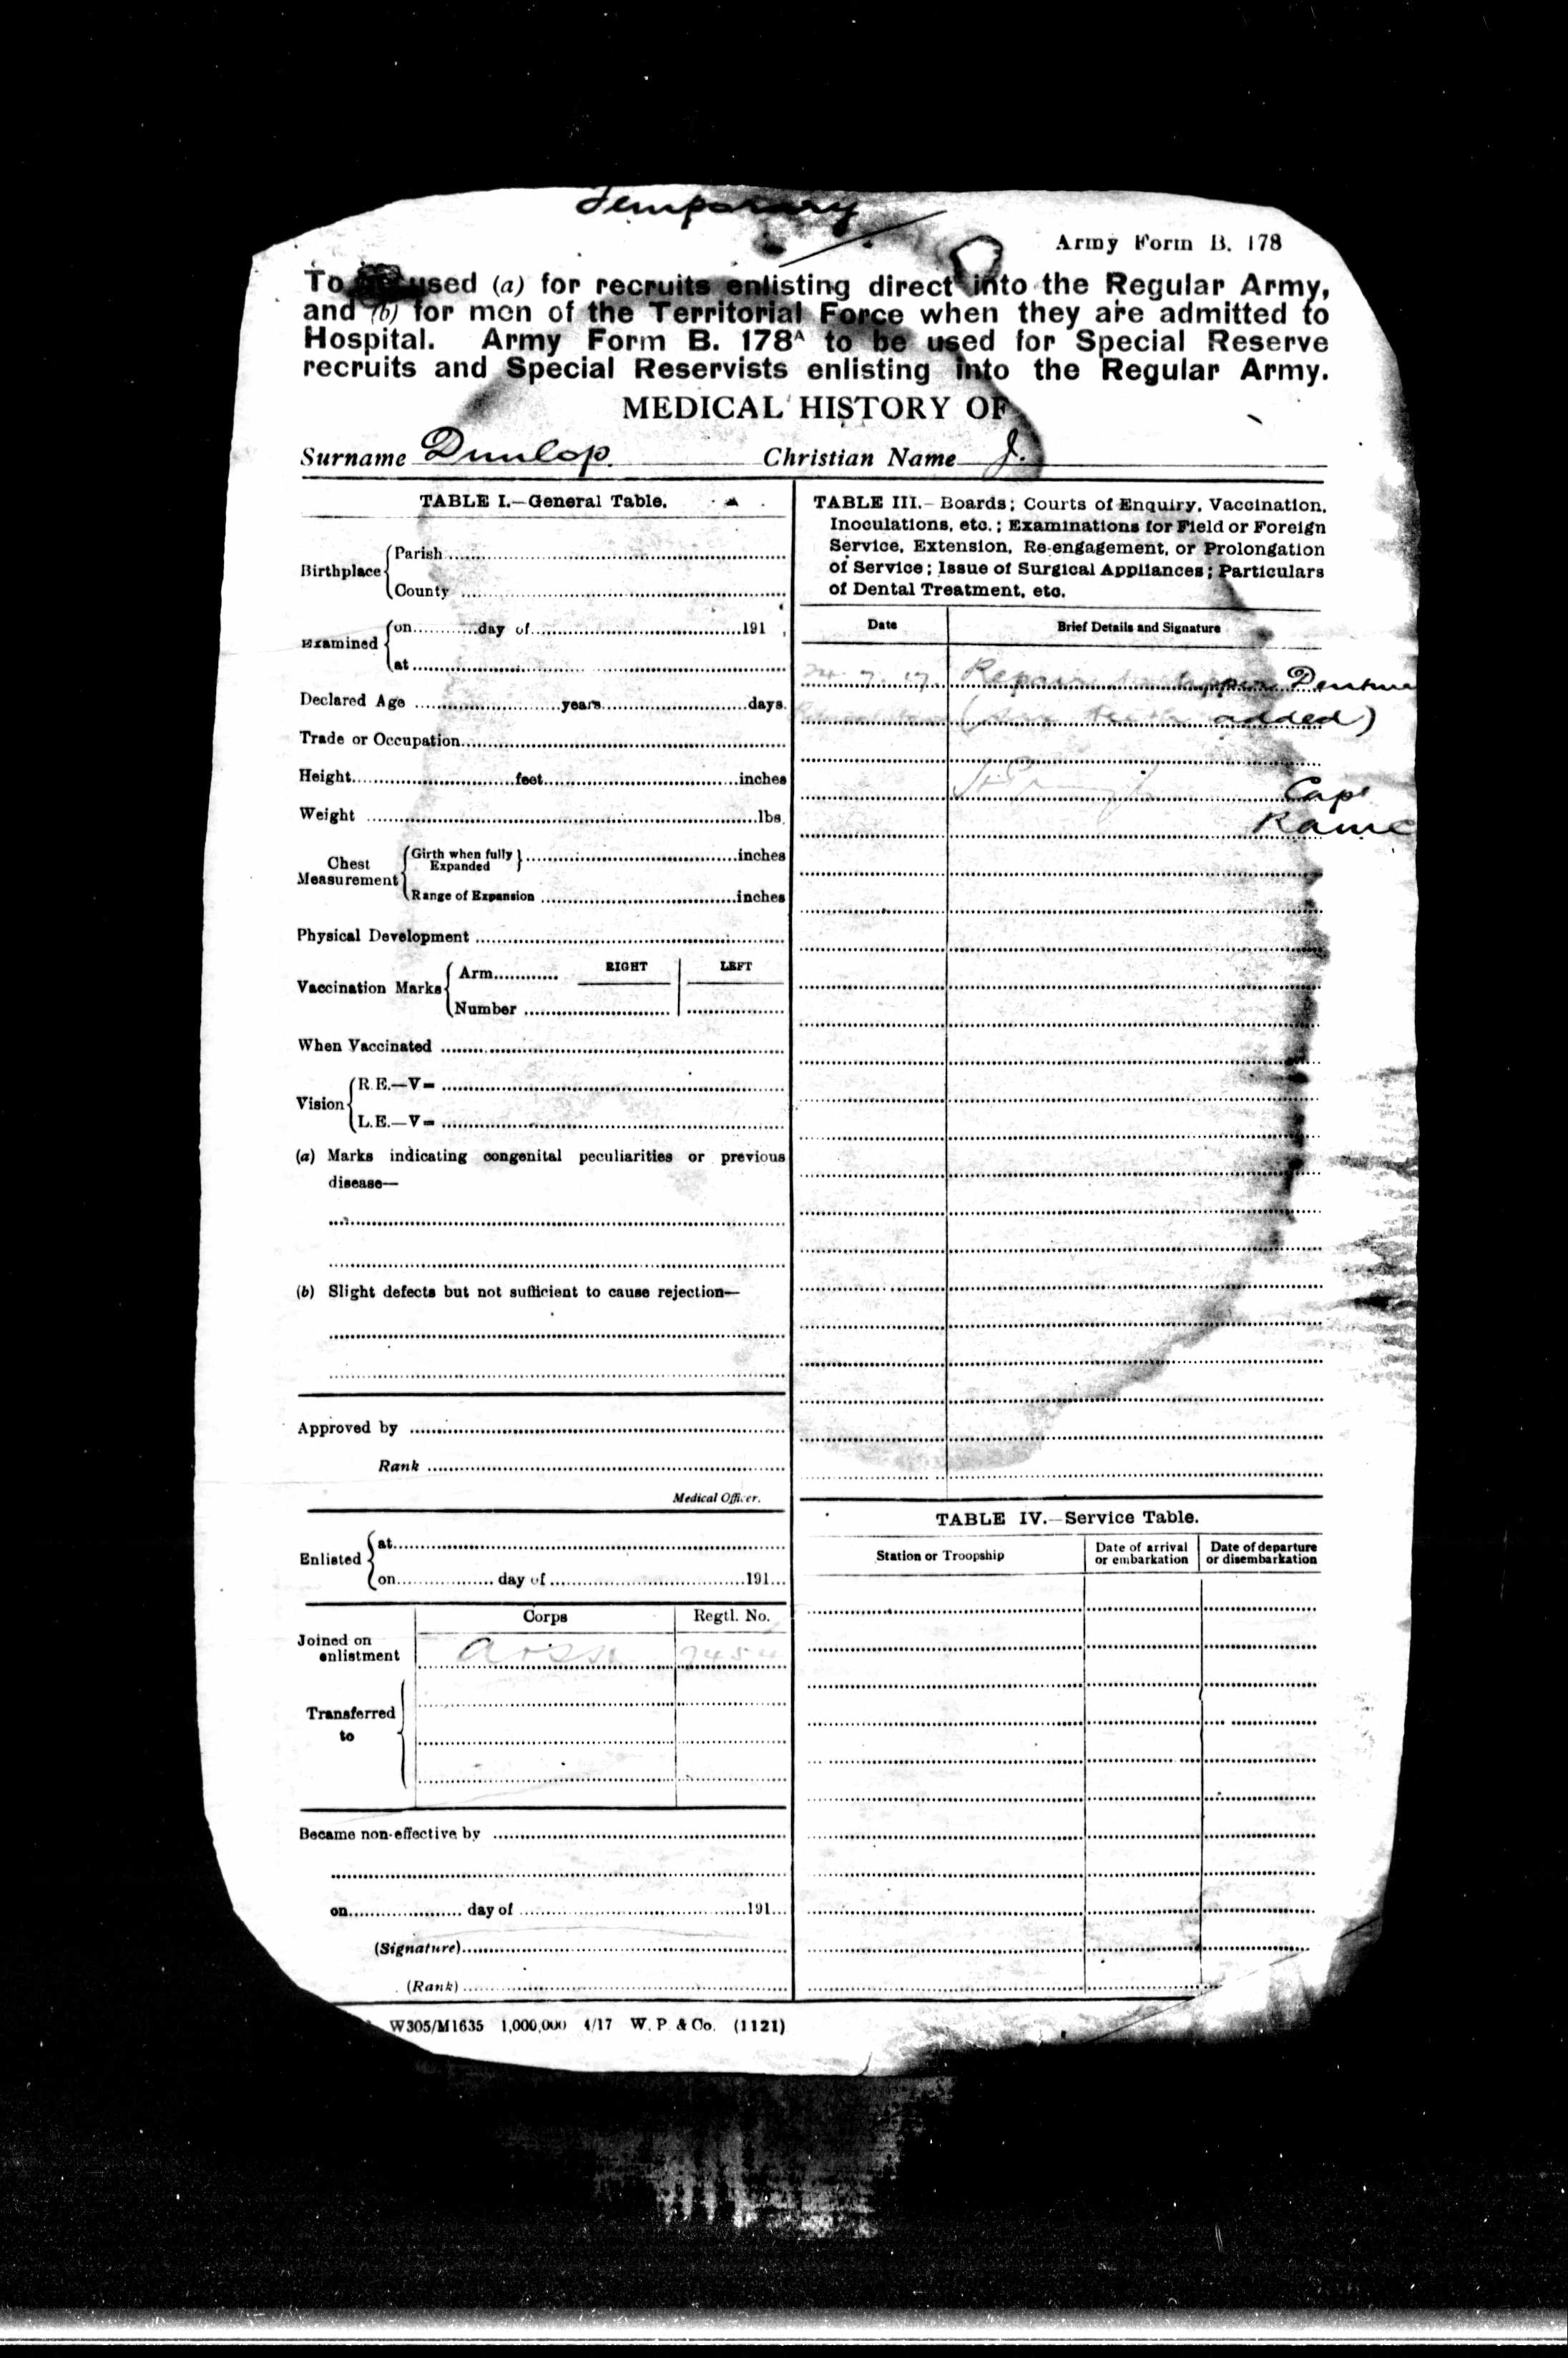 Temporary
Army Form B. 178
To used (a) for recruits enlisting direct into the Regular Army,
and (b) for men of the Territorial Force when they are admitted to
Hospital. Army Form B. 178A to be used for Special Reserve
recruits and Special Reservists enlisting into the Regular Army.
MEDICAL HISTORY OF
Surname Dunlop. Christian Name J.
TABLE I.—General Table.
Birthplace
Parish
County
Examined
on day of 191
at
Declared Age years days.
Trade or Occupation
Height feet inches
Weight lbs.
Chest Measurement
Girth when fully Expanded inches
Range of Expansion inches
Physical Development
Vaccination Marks
Arm RIGHT LEFT
Number
When Vaccinated
Vision
R.E.—V=
L.E.—V=
(a) Marks indicating congenital peculiarities or previous
disease—
(b) Slight defects but not sufficient to cause rejection—
Approved by
Rank
Medical Officer.
Enlisted
at
on day of 191
Corps Regtl. No.
Joined on
enlistment
Transferred
to
Became non-effective by
on day of 191
(Signature)
(Rank)
TABLE III.—Boards; Courts of Enquiry, Vaccination,
Inoculations, etc.; Examinations for Field or Foreign
Service, Extension, Re-engagement, or Prolongation
of Service; Issue of Surgical Appliances; Particulars
of Dental Treatment, etc.
Date Brief Details and Signature
7. 17. Repair to upper Denture
teeth added)
Capt
RAMC
TABLE IV.—Service Table.
Station or Troopship
Date of arrival
or embarkation
Date of departure
or disembarkation
W305/M1635 1,000,000 4/17 W. P. & Co. (1121)